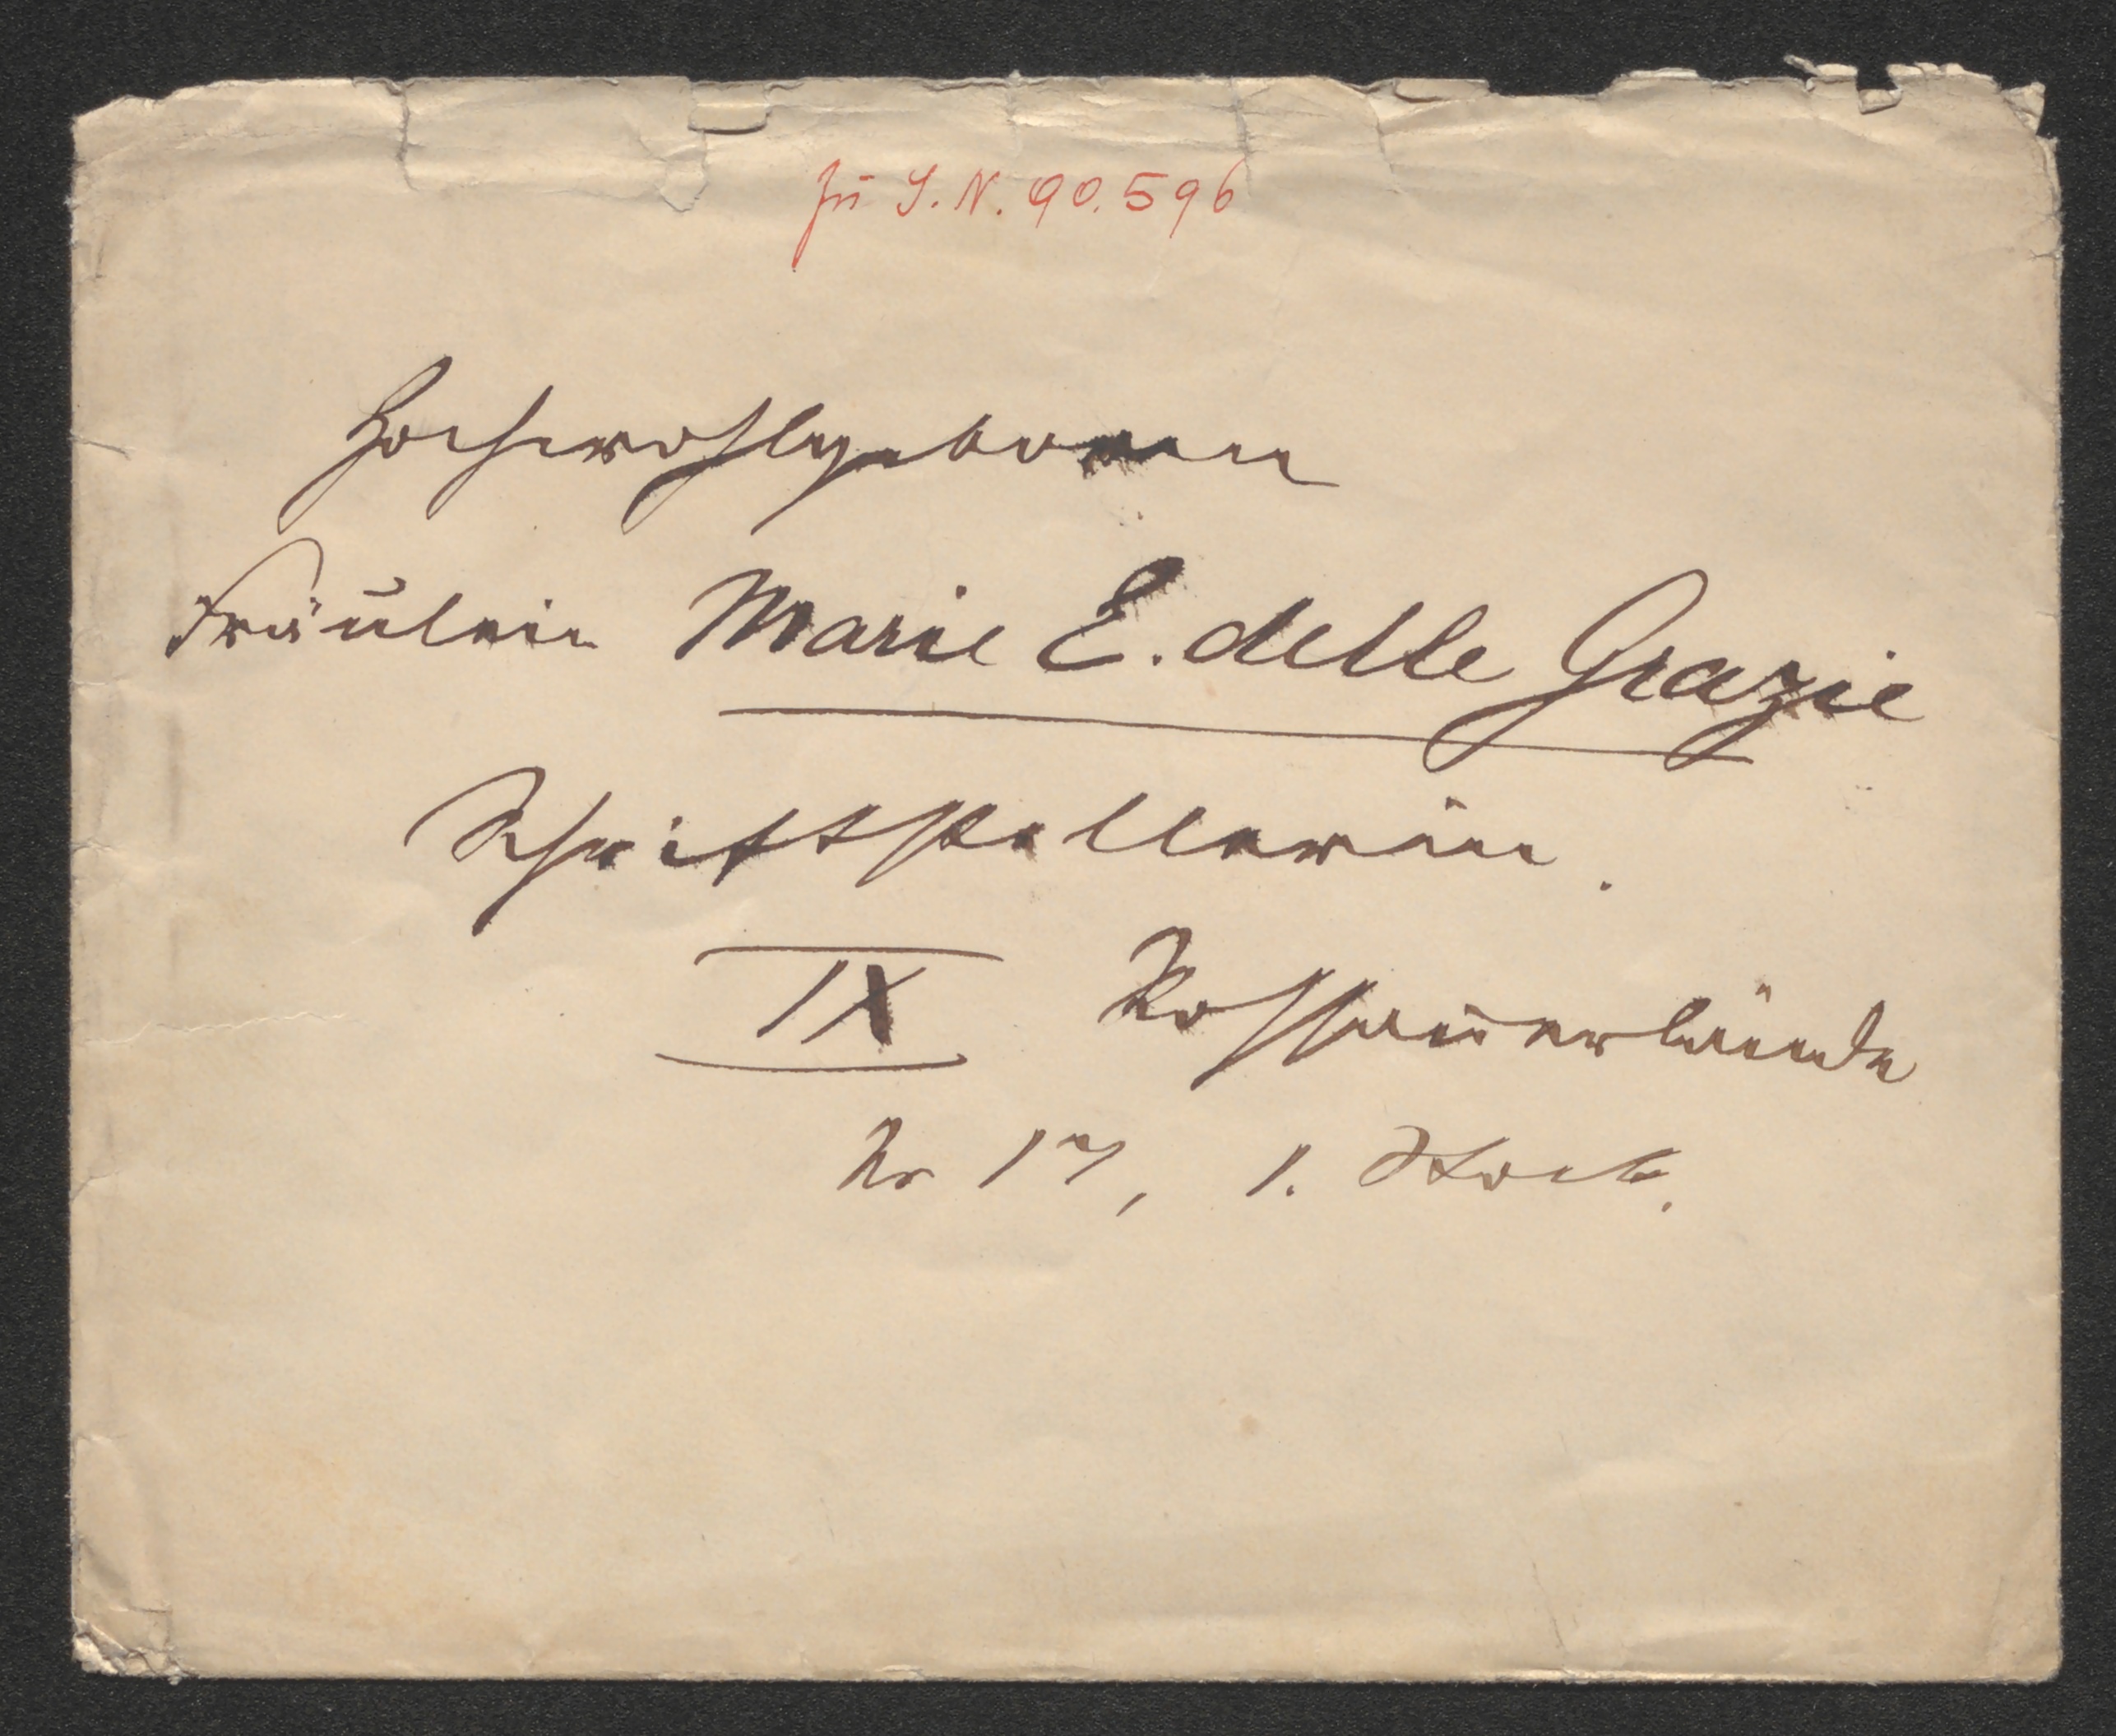 zu I.N. 90.596
Hochwohlgeboren
Fräulein Marie E. delle Grazie
Schriftstellerin.
IX Rossauerlände
Nr 17, 1. Stock.